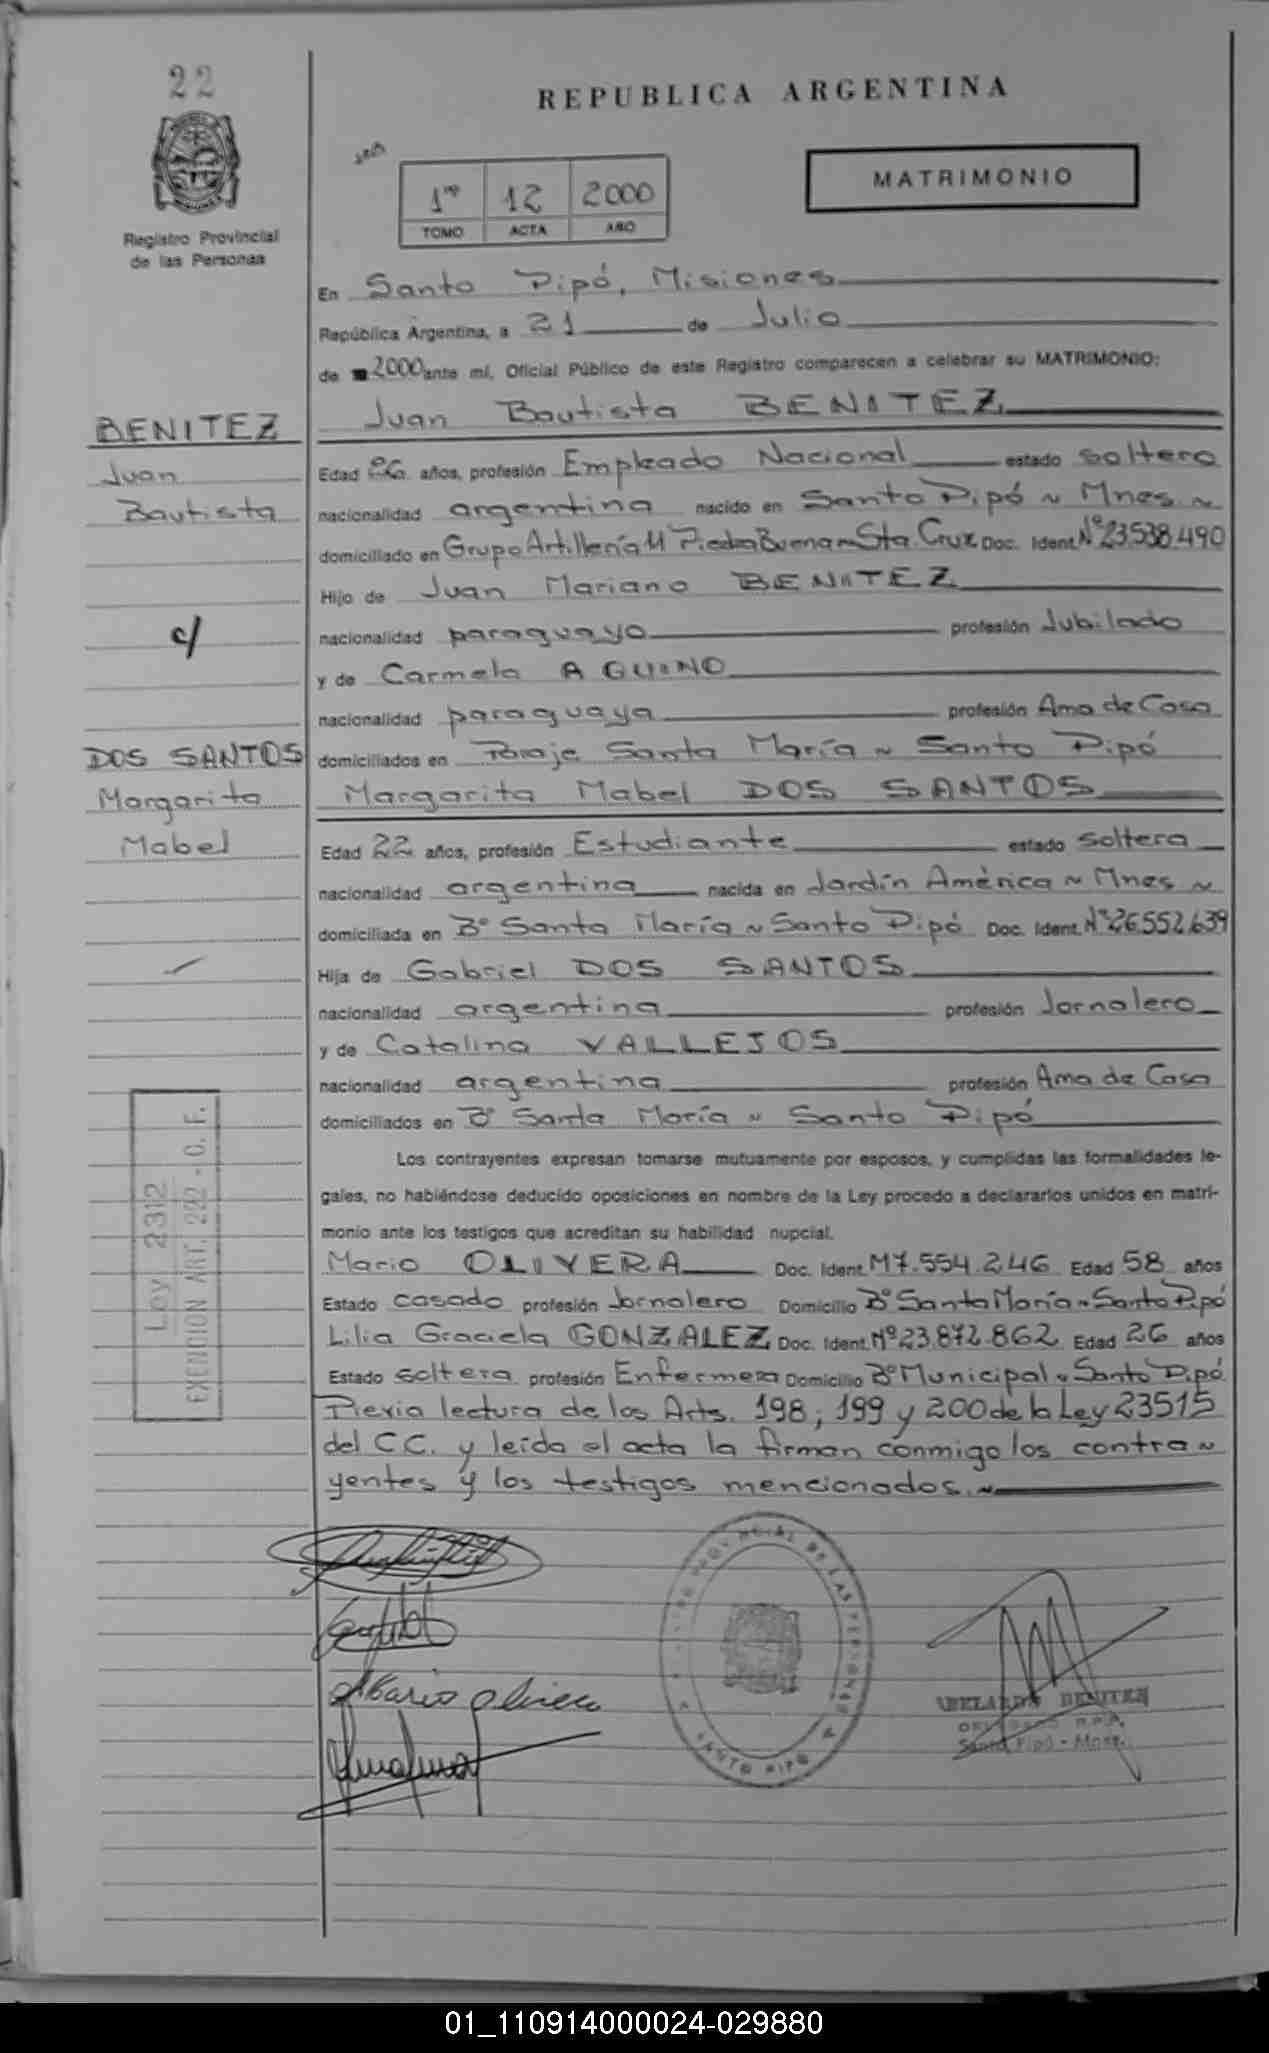 22
REPUBLICA ARGENTINA
1ro 12 2000
TOMO ACTA AÑO
MATRIMONIO
Registro Provincial
de las Personas
En Santo Pipó, Misiones
República Argentina, a 21 de Julio
de 2000 ante mí, Oficial Público de este Registro comparecen a celebrar su MATRIMONIO:
BENITEZ
Juan
Bautista
c/
DOS SANTOS
Margarita
Mabel
Juan Bautista BENITEZ
Edad 26 años, profesión Empleado Nacional estado soltero
nacionalidad argentina nacido en Santo Pipó ~ Mnes ~
domiciliado en Grupo Artillería 11 Piedra Buena ~ Sta. Cruz Doc. Ident. Nº 23.538.490
Hijo de Juan Mariano BENITEZ
nacionalidad paraguayo profesión Jubilado
y de Carmela AQUINO
nacionalidad paraguaya profesión Ama de Casa
domiciliados en Paraje Santa María ~ Santo Pipó
Margarita Mabel DOS SANTOS
Edad 22 años, profesión Estudiante estado soltera
nacionalidad argentina nacida en Jardín América ~ Mnes ~
domiciliada en Bº Santa María ~ Santo Pipó Doc. Ident. Nº 26.552.639
Hija de Gabriel DOS SANTOS
nacionalidad argentina profesión Jornalero
y de Catalina VALLEJOS
nacionalidad argentina profesión Ama de Casa
domiciliados en Bº Santa María ~ Santo Pipó
Los contrayentes expresan tomarse mutuamente por esposos, y cumplidas las formalidades le-
gales, no habiéndose deducido oposiciones en nombre de la Ley procedo a declararlos unidos en matri-
monio ante los testigos que acreditan su habilidad nupcial.
Mario OLIVERA Doc. Ident. M7.554.246 Edad 58 años
Estado casado profesión Jornalero Domicilio Bº Santa María ~ Santo Pipó
Lilia Graciela GONZALEZ Doc. Ident. Nº 23.872.862 Edad 26 años
Estado soltera profesión Enfermera Domicilio Bº Municipal ~ Santo Pipó
Previa lectura de los Arts. 198; 199 y 200 de la Ley 23515
del C.C. y leída el acta la firman conmigo los contra ~
yentes y los testigos mencionados. ~
Ley 2312
EXENCION ART. 222 - O. F.
Mario Olivera
REGISTRO PROVINCIAL DE LAS PERSONAS
SANTO PIPO
ABELARDO BENITEZ
DELEGADO R.P.P.
Santo Pipó - Mnes.
01_110914000024-029880